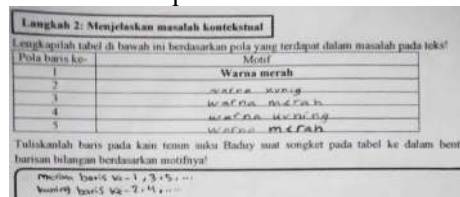 Langkah 2: Menjelaskan masalah kontekstual
Lengkapilah tabel di bawah ini berdasarkan pola yang terdapat dalam masalah pada teks!
Pola baris ke- Motif
1 Warna merah
2 warna kunig
3 warna merah
4 warna kuning
5 warna merah
Tuliskanlah baris pada kain tenun suku Baduy suat songket pada tabel ke dalam bent
barisan bilangan berdasarkan motifnya!
merah baris ke-1, 3, 5, ...
kuning baris ke-2, 4, ...